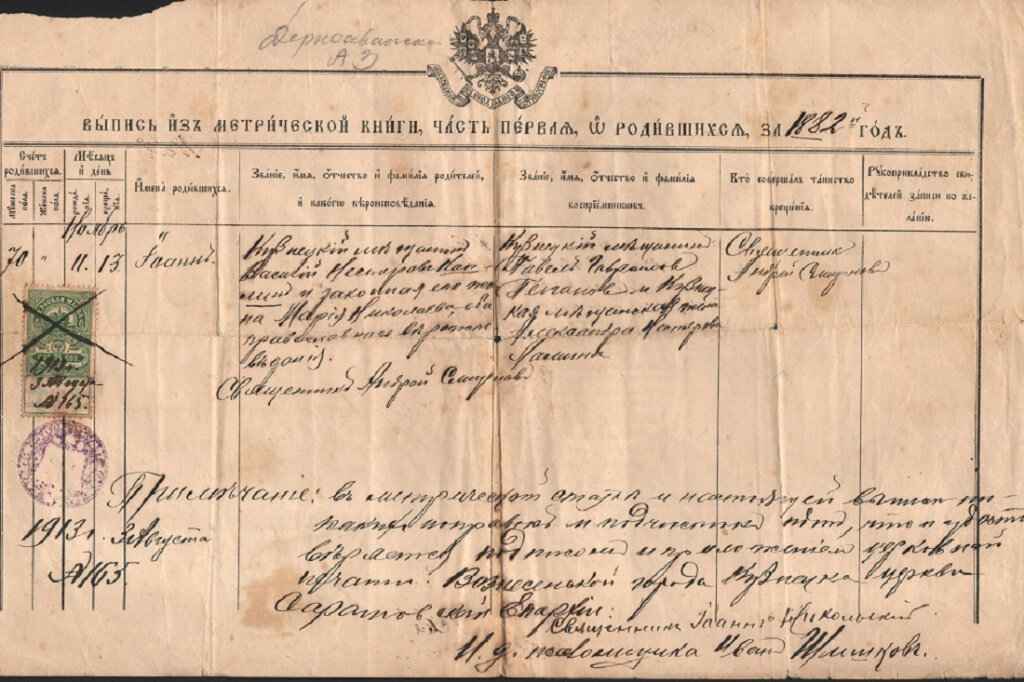 А З
ВЫПИСЬ ИЗЪ МЕТРИЧЕСКОЙ КНИГИ, ЧАСТЬ ПЕРВАЯ, Ѿ РОДИВШИХСЯ, ЗА 1882й ГОДЪ.
Счетъ родившихся.
Мѣсяцъ и день
Мужеска пола.
Женска пола.
рожденія.
крещенія.
Имена родившихся.
Званіе, имя, отчество и фамилія родителей, и какого вѣроисповѣданія.
Званіе, имя, отчество и фамилія воспріемниковъ.
Кто совершалъ таинство крещенія.
Рукоприкладство свидѣтелей записи по желанію.
Ноябрь
70 " 11. 13
Іоаннъ.
Кузнецкій мѣщанинъ
Василій
и законная его же-
на Марія Николаева, оба
православнаго вѣроиспо-
вѣданія.
Священникъ Андрей Смирновъ
Кузнецкій мѣщанинъ
Павелъ Гавриловъ
и Кузнец-
кая мѣщанская
Александра
Священникъ
Андрей Смирновъ
1913 г.
3 Августа
№ 165.
Примѣчаніе: въ метрической статьѣ и настоящей выписи ни-
какихъ поправокъ и подчистокъ нѣтъ, что и удосто-
вѣряется подписомъ и приложеніемъ церковной
печати. Вознесенской города Кузнецка церкви
Саратовской Епархіи:
Священникъ Іоаннъ Никольскій
И. д. псаломщика Иванъ Шишковъ.
1913 г. 3 Августа
№ 165